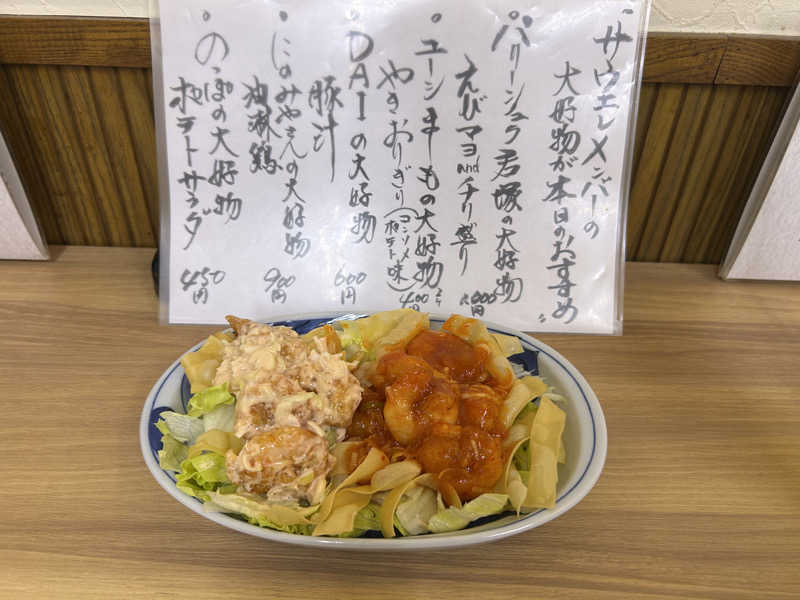 ・サウエレメンバーの
大好物が本日のおすすめ
・バリーシュラ君塚の大好物
えびマヨandチリ盛り
1,000円
・ユーシましもの大好物
やきおりぎり(コンソメポテト味)
400円
・DAIの大好物
豚汁
600円
・にのみやさんの大好物
油淋鶏
900円
・のっぽの大好物
ポテトサラダ
450円